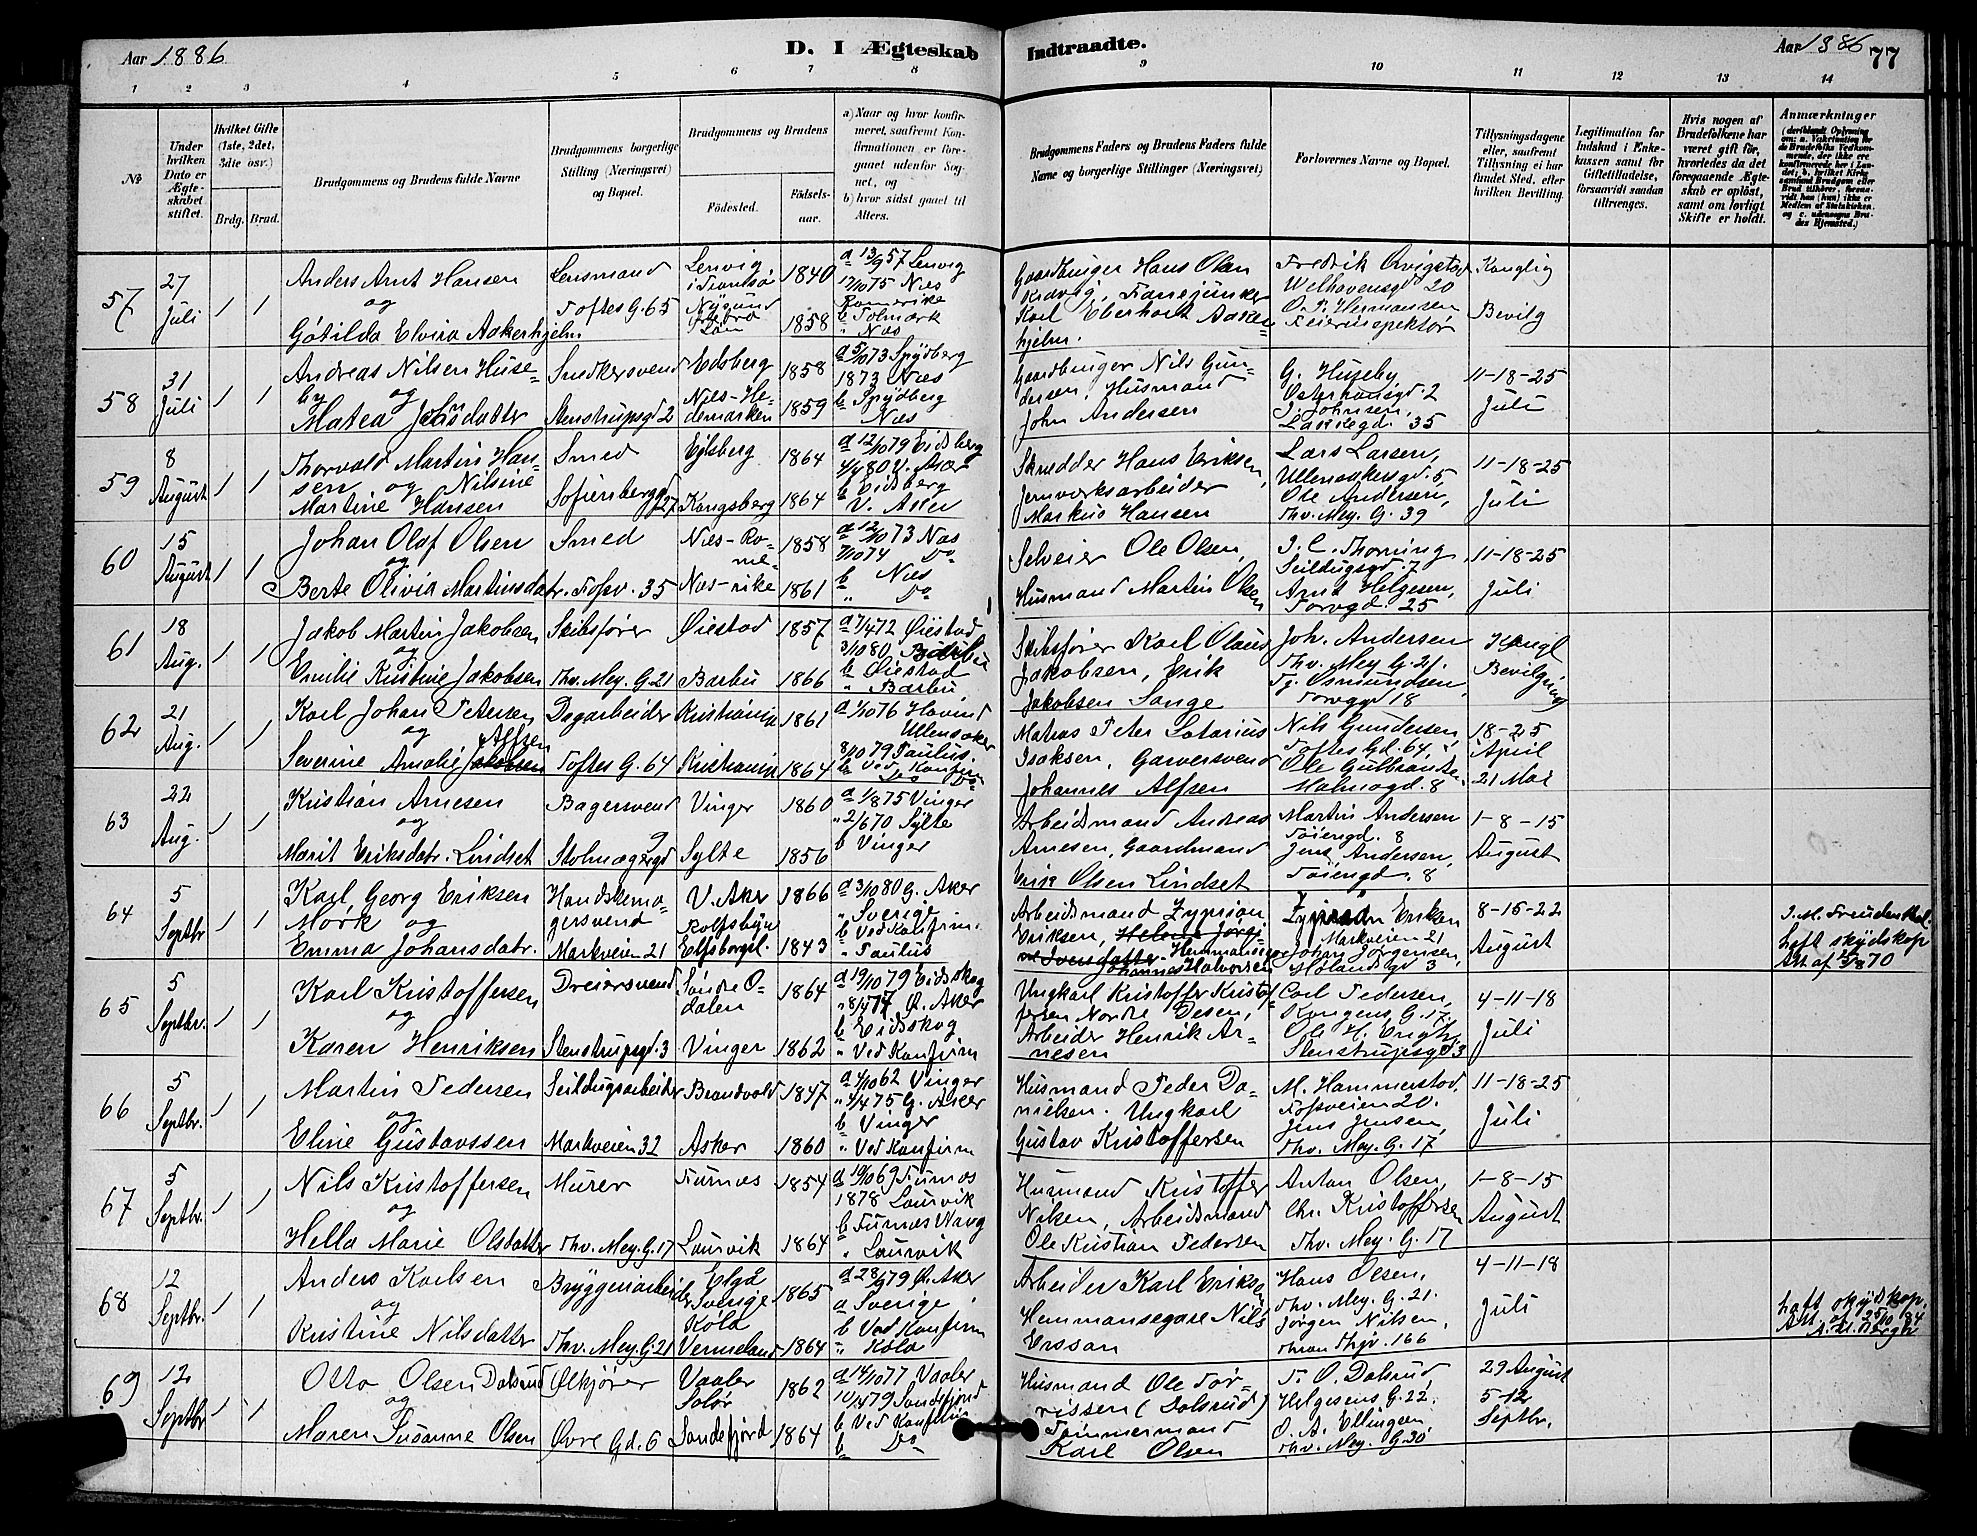 Aar 1886
D. I Ægteskab Indtraadte.
Aar 1886 77
1 2 3 4 5 6 7 8 9 10 11 12 13 14
№
Under hvilken Dato er Ægteskabet stiftet.
Hvilket Gifte (1ste, 2det, 3die osv.)
Brdg. Brud.
Brudgommens og Brudens fulde Navne
Brudgommens borgerlige Stilling (Næringsvei) og Bopæl.
Brudgommens og Brudens
Födested.
Födselsaar.
a) Naar og hvor konfirmeret, saafremt Konfirmationen er foregaaet udenfor Sognet, og
b) hvor sidst gaaet til Alters.
Brudgommens Faders og Brudens Faders fulde Navne og borgerlige Stillinger (Næringsvei)
Forlovernes Navne og Bopæl.
Tillysningsdagene eller, saafremt Tillysning ei har fundet Sted, efter hvilken Bevilling.
Legitimation for Indskud i Enkekassen samt for Giftetilladelse, forsaavidt saadan tiltrænges.
Hvis nogen af Brudefolkene har været gift før, hvorledes da det foregaaende Ægteskab er oplöst, samt om lovligt Skifte er holdt.
Anmærkninger
57
27 Juli
1 1
Anders Arnt Hansen
og
Gótilda Elvira Aakerhjelm.
Lensmand
Toftes G. 65
Lenvig
1840
1858
a 13/9 57 Lenvig
17/10 75 Næs
Romerike
" Næs
Gaardbruger Hans Olsen
Karl Eberhart Aaker-
hjelm.
Fredrik Qvigstad
Welhavensgd 20
O. P. Hermansen
Feierinspektør
Konglig
Bevilg
58
31 Juli
1 1
Andreas Nilsen Huse-
by og
Matea Johnsdatter
Snedkersvend
Stenstrupsgd 2
Eidsberg
Næs-He-
demarken
1858
1859
a 5/10 73 Spydberg
1873 Næs
b Spydberg
Næs
Gaardbruger Nils Gun-
dersen, Husmand
John Andersen
G. Huseby
Osterhausgd 2
J. Johnsen,
Lakkegd. 35
11-18-25
Juli
59
8 August
1 1
Thorvald Martin Han-
sen og Nilsine
Martine Hansen
Smed
Sofienbergg 27
Kongsberg
1864
1864
a 12/10 79 Eidsberg
4/4 80 V. Aker
b Eidsberg
V. Aker
Skrædder Hans Eriksen,
Jernverksarbeider
Markus Hansen
Lars Larsen,
Ullensakersgd. 5,
Ole Andersen,
Thv. Mey. G. 39
11-18-25
Juli
60
15 August
1 1
Johan Olaf Olsen
og
Berte Olivia Martinsdatr.
Smed
Fosv. 35
Næs-Ro-
me-
Næs-rike
1858
1861
a 12/10 73 Næs
7/10 74 Do
b Næs
" Do
Selveier Ole Olsen,
Husmand Martin Olsen
J. C. Thorning
Seildugsgd. 7
Arnt Helgesen,
Torvgd. 25
11-18-25
Juli
61
18 Aug.
1 1
Jakob Martin Jakobsen
og
Emilie Kristine Jakobsen
Skibsfører
Thv. Mey. G 21
Øiestad
Barbu
1857
1866
a 7/4 72 Øiestad
3/10 80 Barbu
b Øiestad
" Barbu
Skibsfører Karl Olaus
Jakobsen, Erik
Jakobsen Lange
Joh. Andersen
Thv. Mey. G. 21.
Tj. Osmundsen,
Torvgd 18
Kongl
Bevilgning
62
21 Aug.
1 1
Karl Johan Petersen
og Alfsen
Severine Amalie Jakobsen
Dagarbeider
Toftes G. 64
Kristiania
Kristiania
1861
1864
a 1/10 76 Hovind
Ullensaker
8/10 79 Paulus.
b Ved Konfirm
Do Do
Matros Peter Lotarius
Isaksen, Garversvend
Johannes Alfsen
Nils Gundersen,
Toftes Gd. 64,
Ole Gulbrandsen
Malmøgd. 8
18-25
April
21 Mai
63
22 Aug.
1 1
Kristian Arnesen
og
Marit Eriksdatr. Lindset
Bagersvend
Stolmagergd 9
Vinger
Sylte
1860
1856
a 1/8 75 Vinger
" 2/6 70 Sylte
b Vinger
Arbeidsmand Andreas
Arnesen, Gaardmand
Erik Olsen Lindset
Martin Andersen
Töiengd. 8
Jens Andersen,
Töiengd. 8
1-8-15
August
64
5 Septbr
1 1
Karl Georg Eriksen
Mörk og
Emma Johansdatr.
Handskema-
gersvend
Markveien 21
V. Aker
Rolfsbyn
Elfsborgsl.
1866
1843
a 3/10 80 G. Aker
" Sverige
b Ved Konfirm.
" Paulus
Arbeidsmand Zyprian
Eriksen, Helene Jörgi-
ne Iversdatter Hemmansegare
Johannes Halvorsen
Zyprian Eriksen
Markveien 21
Johan Jørgensen,
Hölandsgd 3
8-15-22
August
J. M. Freudenthal.
haft skydskop
Att af 12/8 70
65
5 Septbr.
1 1
Karl Kristoffersen
og
Karen Henriksen
Dreiersvend
Stenstrupsgd. 3
Søndre O-
dalen
Vinger
1864
1862
a 19/10 79 Eidskog
" 8/4 77 Ø. Aker
b Eidskog
" Ved Konfirm
Ungkarl Kristoffer Kristof-
fersen Nordre Desen,
Arbeider Henrik Ar-
nesen
Carl Pedersen,
Kongens G. 17.
Ole H. Engh,
Stenstrupsgd 3
4-11-18
Juli
66
5 Septbr.
1 1
Martin Pedersen
og
Eline Gustavssen
Seildugsarbeider
Markveien 32
Brandvold
Asker
1847
1860
a 4/10 62 Vinger
" 4/4 75 G. Aker
b Vinger
" Ved Konfirm
Husmand Peder Da-
nielsen. Ungkarl
Gustav Kristoffersen
M. Hammerstad,
Fosveien 20.
Jens Jensen,
Thv. Mey. G. 17
11-18-25
Juli
67
5 Septbr.
1 1
Nils Kristoffersen
og
Hella Marie Olsdatter
Murer
Thv. Mey. G. 17
Furnæs
Laurvik
1854
1864
a 19/10 69 Furnæs
1878 Laurvik
b Furnæs Vang
" Laurvik
Husmand Kristoffer
Nilsen, Arbeidsmand
Ole Kristian Pedersen
Anton Olsen,
Chr. Kristoffersen
Thv. Mey. G. 17
1-8-15
August
68
12 Septbr.
1 1
Anders Karlsen
og
Kristine Nilsdatter
Bryggeriarbeider
Thv. Mey. G. 21
Elgå
Sverige
Köla
Vermeland
1865
1864
a 28/9 79 Ø. Aker
a Sverige
b Ved Konfirm
" Köla
Arbeider Karl Eriksen
Hemmansegare Nils
Ersson
Hans Olsen,
Thv. Mey. G. 21.
Jørgen Nilsen,
Thv. 166
4-11-18
Juli
haft skydskop.
Att. af 25/10 84
A. M. Bergh
69
12 Septbr
1 1
Otto Olsen Dalsrud
og
Maren Susanne Olsen
Ølkjører
Øvre Gd. 6
Vaaler
Solør
Sandefjord
1862
1864
a 14/10 77 Vaaler
10/4 79 Sandefjord
b Ved Konfirm
b Do
Husmand Ole Tor-
rissen (Dalsrud)
Tømmermand
Karl Olsen
T. O. Dalsrud
Helgesens G. 22,
O. A. Ellingsen,
Thv. Mey. G. 20
29 August
5-12
Septbr.